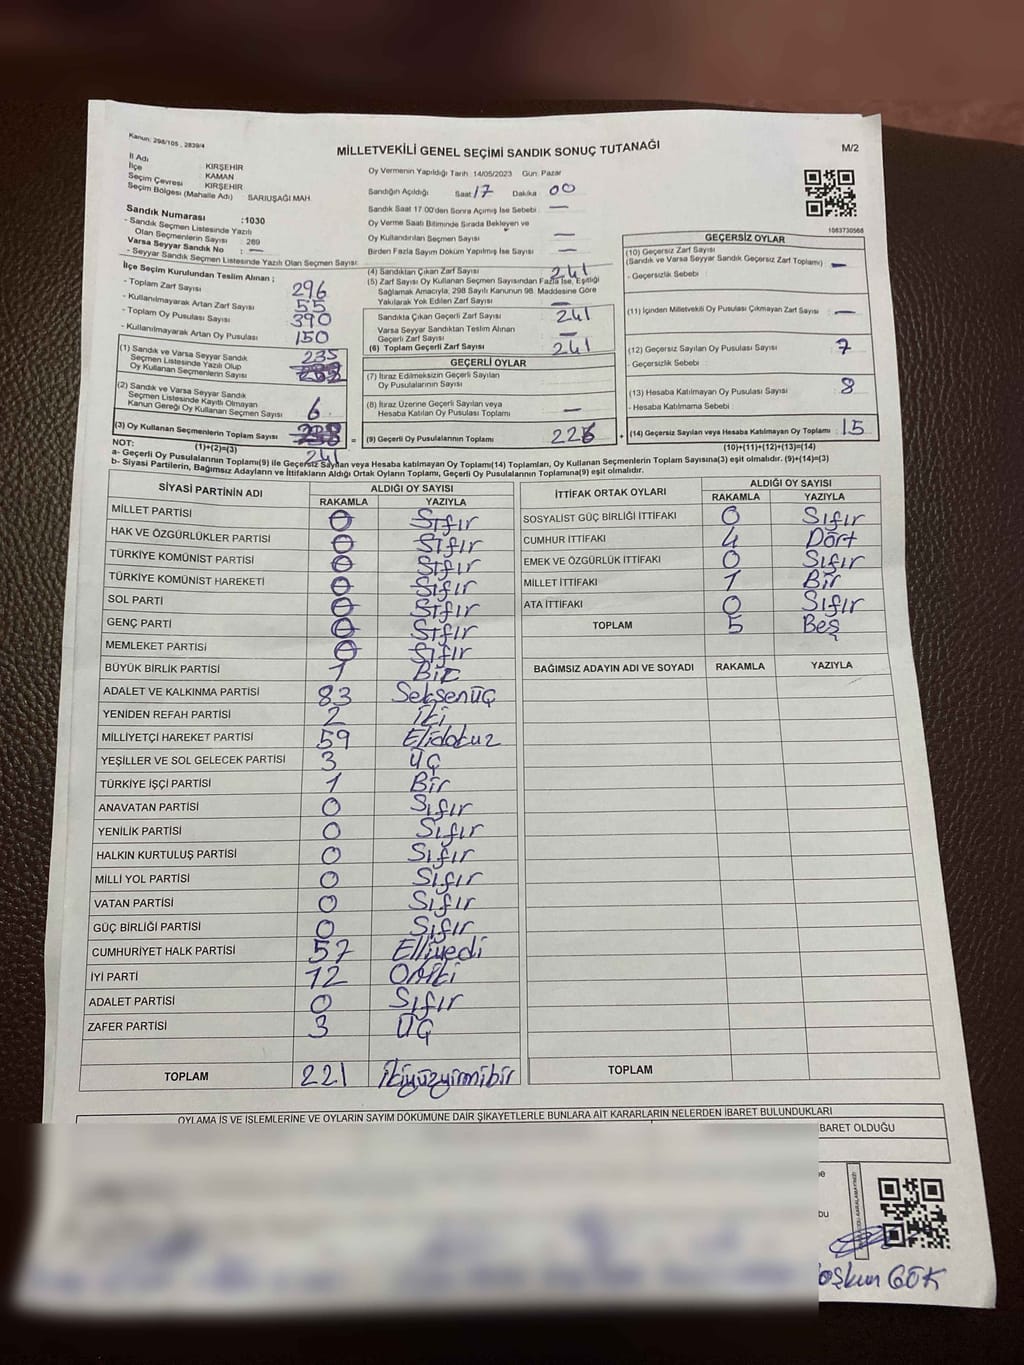 Kanun: 298/105 , 2839/4
MİLLETVEKİLİ GENEL SEÇİMİ SANDIK SONUÇ TUTANAĞI
M/2
İl Adı KIRŞEHİR
İlçe KAMAN
Seçim Çevresi KIRŞEHİR
Seçim Bölgesi (Mahalle Adı) SARIUŞAĞI MAH.
Sandık Numarası :1030
- Sandık Seçmen Listesinde Yazılı
Olan Seçmenlerin Sayısı : 269
Varsa Seyyar Sandık No : —
- Seyyar Sandık Seçmen Listesinde Yazılı Olan Seçmen Sayısı:
Oy Vermenin Yapıldığı Tarih 14/05/2023 Gün: Pazar
Sandığın Açıldığı Saat 17 Dakika 00
Sandık Saat 17.00'den Sonra Açımış İse Sebebi : —
Oy Verme Saati Bitiminde Sırada Bekleyen ve
Oy Kullandırılan Seçmen Sayısı —
Birden Fazla Sayım Döküm Yapılmış İse Sayısı —
1063730568
İlçe Seçim Kurulundan Teslim Alınan ;
- Toplam Zarf Sayısı 296
- Kullanılmayarak Artan Zarf Sayısı 55
- Toplam Oy Pusulası Sayısı 390
- Kullanılmayarak Artan Oy Pusulası 150
(1) Sandık ve Varsa Seyyar Sandık
Seçmen Listesinde Yazılı Olup
Oy Kullanan Seçmenlerin Sayısı 235
(2) Sandık ve Varsa Seyyar Sandık
Seçmen Listesinde Kayıtlı Olmayan
Kanun Gereği Oy Kullanan Seçmen Sayısı 6
(3) Oy Kullanan Seçmenlerin Toplam Sayısı 241
(1)+(2)=(3)
(4) Sandıktan Çıkan Zarf Sayısı 241
(5) Zarf Sayısı Oy Kullanan Seçmen Sayısından Fazla İse, Eşitliği
Sağlamak Amacıyla, 298 Sayılı Kanunun 98. Maddesine Göre
Yakılarak Yok Edilen Zarf Sayısı —
Sandıkta Çıkan Geçerli Zarf Sayısı 241
Varsa Seyyar Sandıktan Teslim Alınan
Geçerli Zarf Sayısı —
(6) Toplam Geçerli Zarf Sayısı 241
GEÇERLİ OYLAR
(7) İtiraz Edilmeksizin Geçerli Sayılan
Oy Pusulalarının Sayısı
(8) İtiraz Üzerine Geçerli Sayılan veya
Hesaba Katılan Oy Pusulası Toplamı —
= (9) Geçerli Oy Pusulalarının Toplamı 226 +
GEÇERSİZ OYLAR
(10) Geçersiz Zarf Sayısı
(Sandık ve Varsa Seyyar Sandık Geçersiz Zarf Toplamı) —
- Geçersizlik Sebebi :
(11) İçinden Milletvekili Oy Pusulası Çıkmayan Zarf Sayısı —
(12) Geçersiz Sayılan Oy Pusulası Sayısı 7
- Geçersizlik Sebebi :
(13) Hesaba Katılmayan Oy Pusulası Sayısı 8
- Hesaba Katılmama Sebebi
(14) Geçersiz Sayılan veya Hesaba Katılmayan Oy Toplamı 15
(10)+(11)+(12)+(13)=(14)
NOT:
a- Geçerli Oy Pusulalarının Toplamı(9) ile Geçersiz Sayılan veya Hesaba katılmayan Oy Toplamı(14) Toplamları, Oy Kullanan Seçmenlerin Toplam Sayısına(3) eşit olmalıdır. (9)+(14)=(3)
b- Siyasi Partilerin, Bağımsız Adayların ve İttifakların Aldığı Ortak Oyların Toplamı, Geçerli Oy Pusulalarının Toplamına(9) eşit olmalıdır.
SİYASİ PARTİNİN ADI ALDIĞI OY SAYISI
RAKAMLA YAZIYLA
MİLLET PARTİSİ 0 Sıfır
HAK VE ÖZGÜRLÜKLER PARTİSİ 0 Sıfır
TÜRKİYE KOMÜNİST PARTİSİ 0 Sıfır
TÜRKİYE KOMÜNİST HAREKETİ 0 Sıfır
SOL PARTİ 0 Sıfır
GENÇ PARTİ 0 Sıfır
MEMLEKET PARTİSİ 0 Sıfır
BÜYÜK BİRLİK PARTİSİ 1 Bir
ADALET VE KALKINMA PARTİSİ 83 Seksenüç
YENİDEN REFAH PARTİSİ 2 İki
MİLLİYETÇİ HAREKET PARTİSİ 59 Elidokuz
YEŞİLLER VE SOL GELECEK PARTİSİ 3 Üç
TÜRKİYE İŞÇİ PARTİSİ 1 Bir
ANAVATAN PARTİSİ 0 Sıfır
YENİLİK PARTİSİ 0 Sıfır
HALKIN KURTULUŞ PARTİSİ 0 Sıfır
MİLLİ YOL PARTİSİ 0 Sıfır
VATAN PARTİSİ 0 Sıfır
GÜÇ BİRLİĞİ PARTİSİ 0 Sıfır
CUMHURİYET HALK PARTİSİ 57 Elliyedi
İYİ PARTİ 12 Oniki
ADALET PARTİSİ 0 Sıfır
ZAFER PARTİSİ 3 Üç
TOPLAM 221 İkiyüzyirmibir
İTTİFAK ORTAK OYLARI ALDIĞI OY SAYISI
RAKAMLA YAZIYLA
SOSYALİST GÜÇ BİRLİĞİ İTTİFAKI 0 Sıfır
CUMHUR İTTİFAKI 4 Dört
EMEK VE ÖZGÜRLÜK İTTİFAKI 0 Sıfır
MİLLET İTTİFAKI 1 Bir
ATA İTTİFAKI 0 Sıfır
TOPLAM 5 Beş
BAĞIMSIZ ADAYIN ADI VE SOYADI RAKAMLA YAZIYLA
TOPLAM
OYLAMA İŞ VE İŞLEMLERİNE VE OYLARIN SAYIM DÖKÜMÜNE DAİR ŞİKAYETLERLE BUNLARA AİT KARARLARIN NELERDEN İBARET BULUNDUKLARI
BARET OLDUĞU
bu
oşkun GÖK